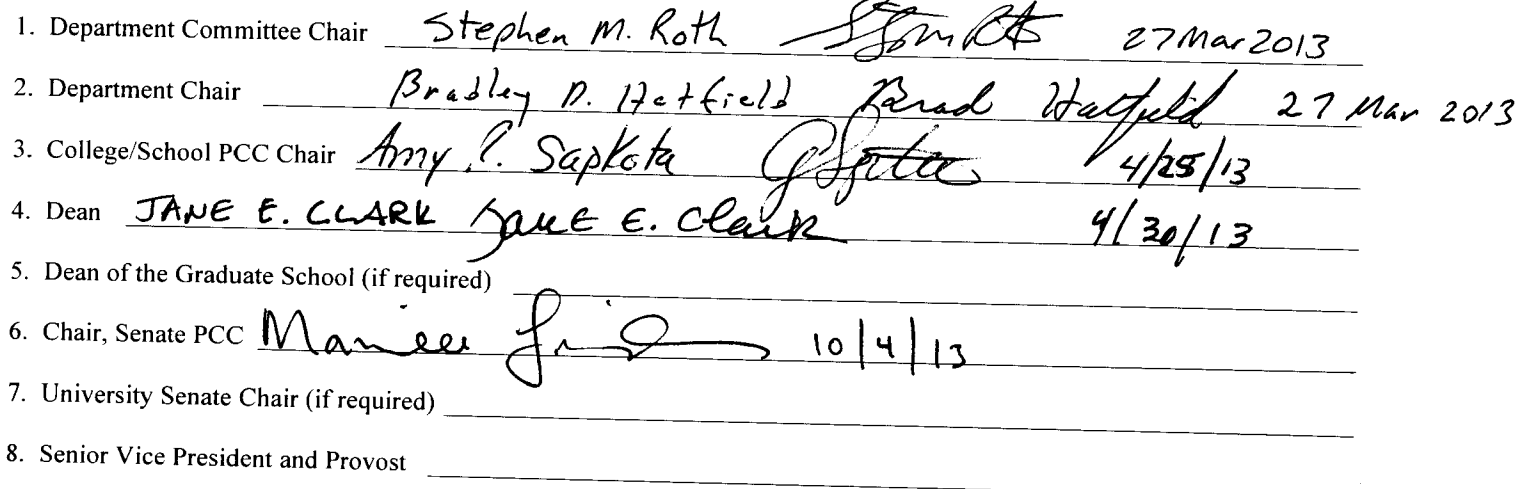 1. Department Committee Chair Stephen M. Roth 27 Mar 2013
2. Department Chair Bradley D. Hatfield Brad Hatfield 27 Mar 2013
3. College/School PCC Chair Amy R. Sapkota 4/25/13
4. Dean JANE E. CLARK Jane E. Clark 4/30/13
5. Dean of the Graduate School (if required)
6. Chair, Senate PCC 10/4/13
7. University Senate Chair (if required)
8. Senior Vice President and Provost